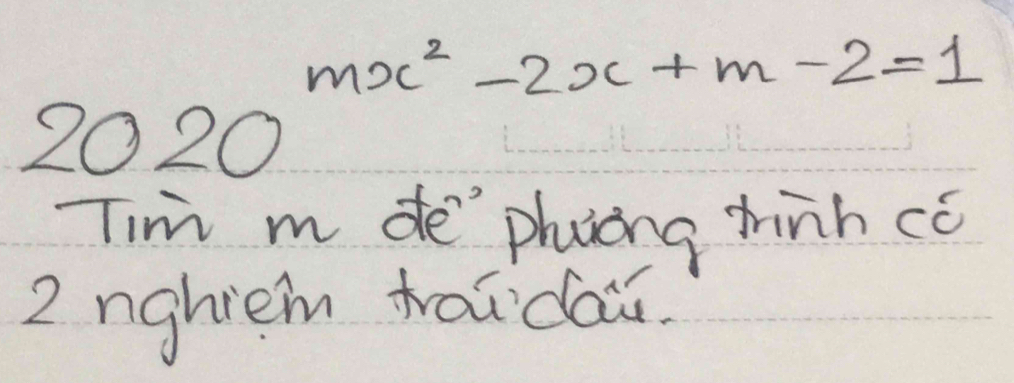 2020^{mx² - 2x + m - 2 = 1}
Tìm m để phương trình có
2 nghiệm trái dấu.